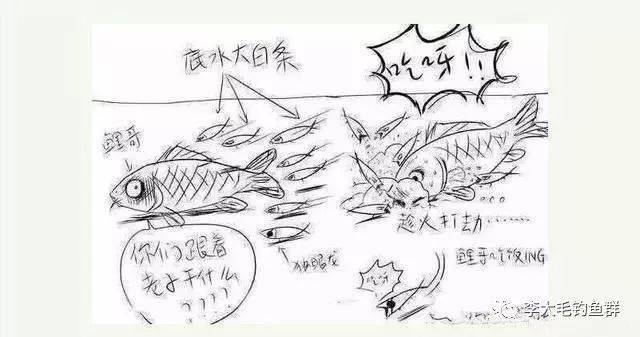 底水大白条
吃呀!!
鲤哥
你们跟着
老子干什么
????
独眼龙
趁火打劫……
鲤哥吃饭ING
吃呀
李大毛钓鱼群